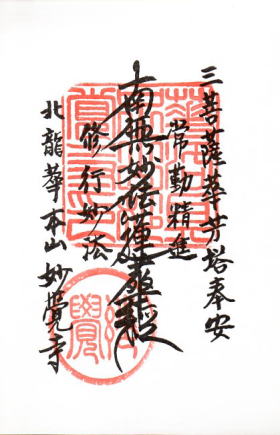 三菩薩華芳塔奉安
常勤精進
南無妙法蓮華経
修行妙法
北龍華本山妙覺寺
妙覺